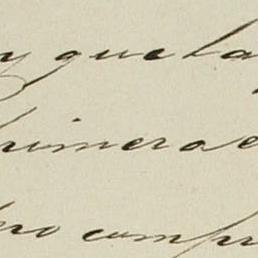 y que la
primera e
no comp